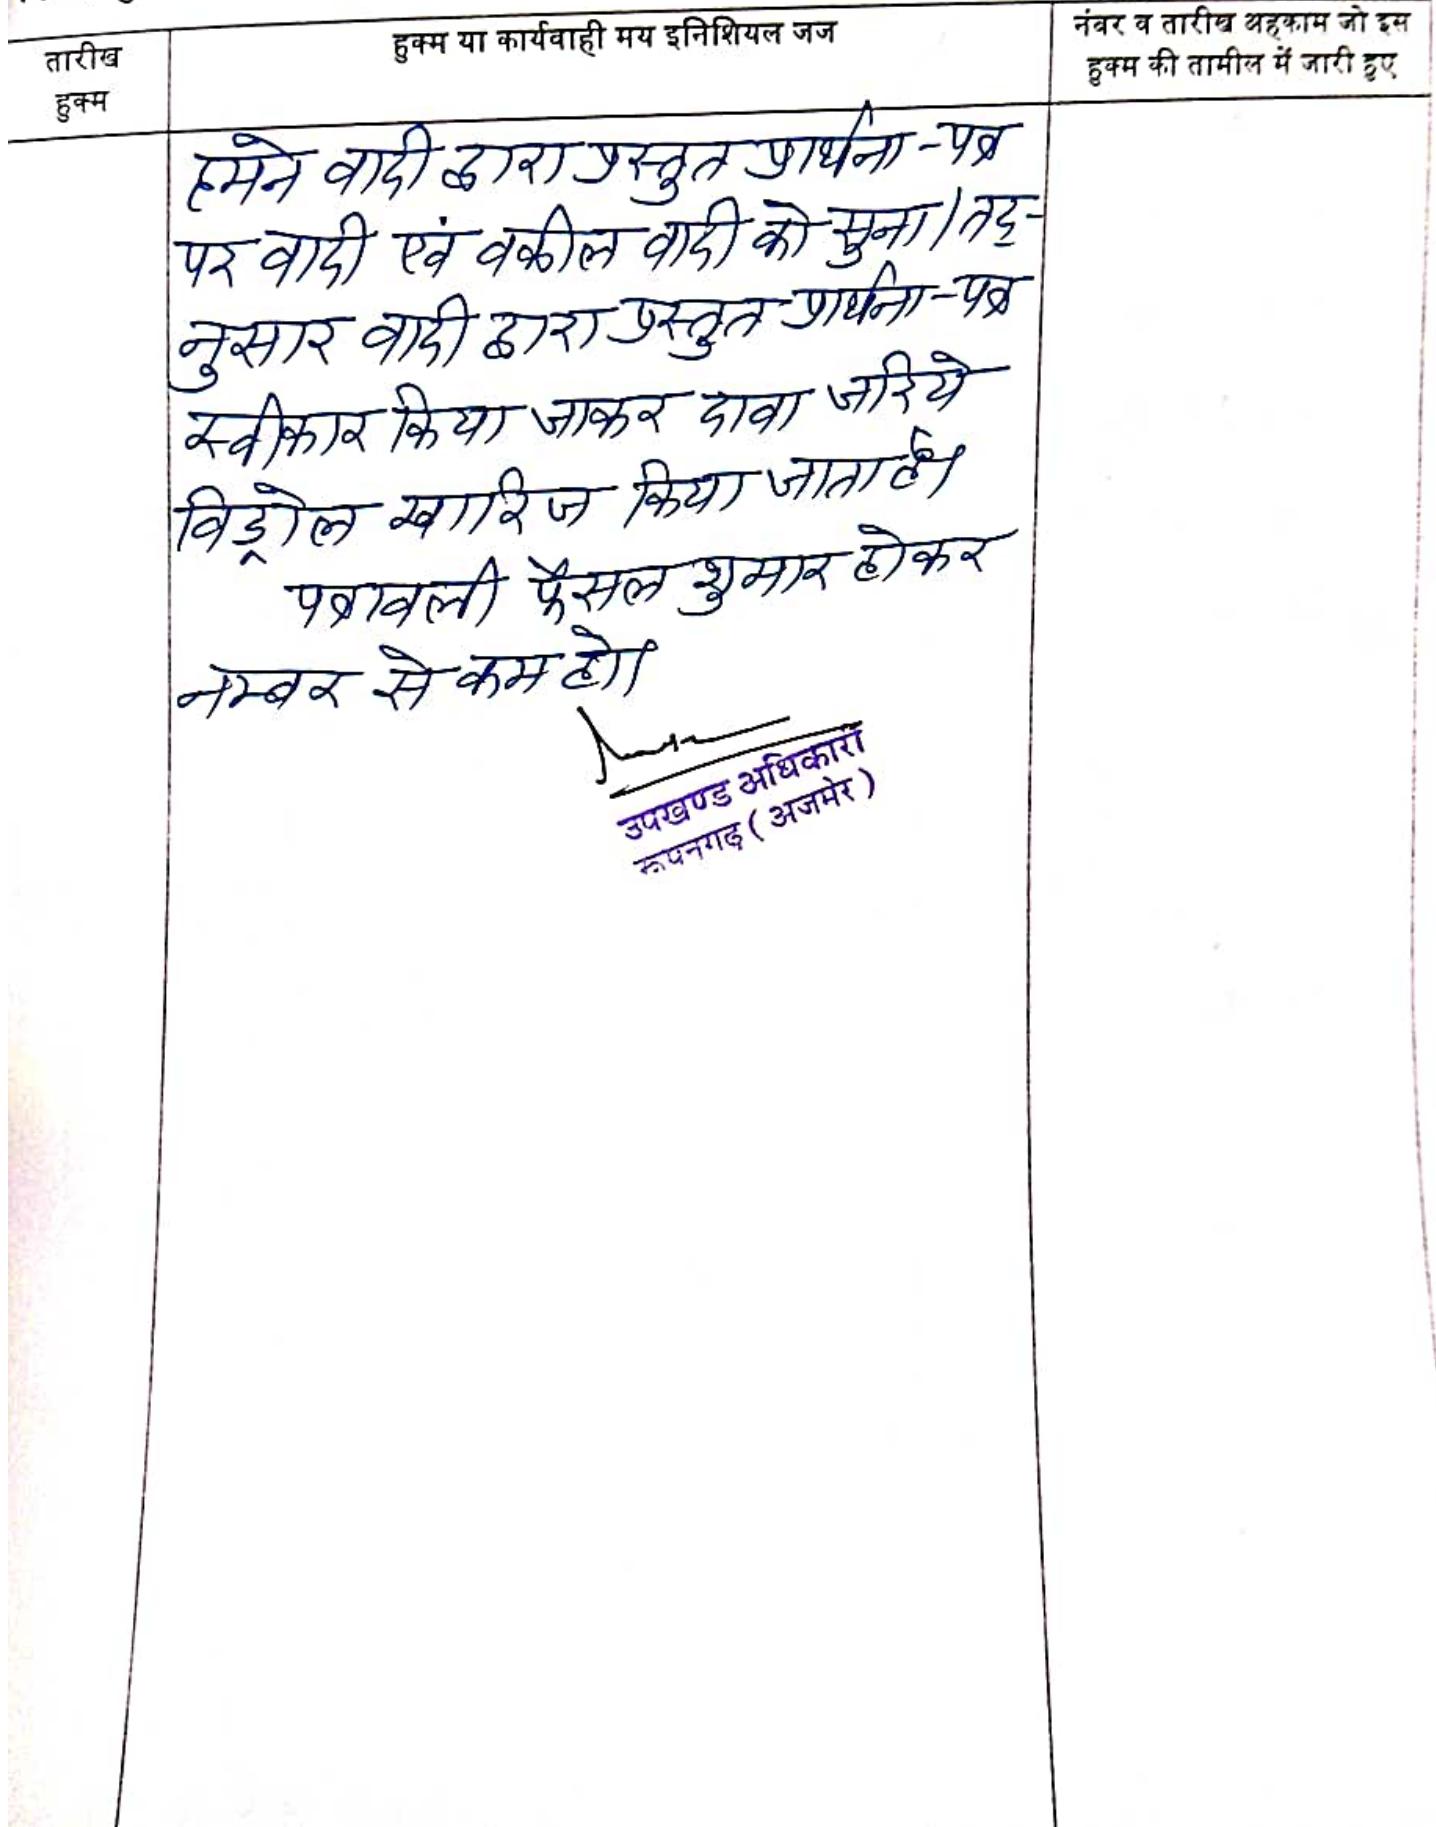 तारीख
हुक्म
हुक्म या कार्यवाही मय इनिशियल जज
नंबर व तारीख अहकाम जो इस
हुक्म की तामील में जारी हुए
हमने वादी द्वारा प्रस्तुत प्रार्थना-पत्र
पर वादी एवं वकील वादी को सुना। तद्-
नुसार वादी द्वारा प्रस्तुत प्रार्थना-पत्र
स्वीकार किया जाकर दावा जरिये
विड्रोल खारिज किया जाता है।
पत्रावली फैसल शुमार होकर
नम्बर से कम हो।
उपखण्ड अधिकारी
रूपनगढ़ (अजमेर)